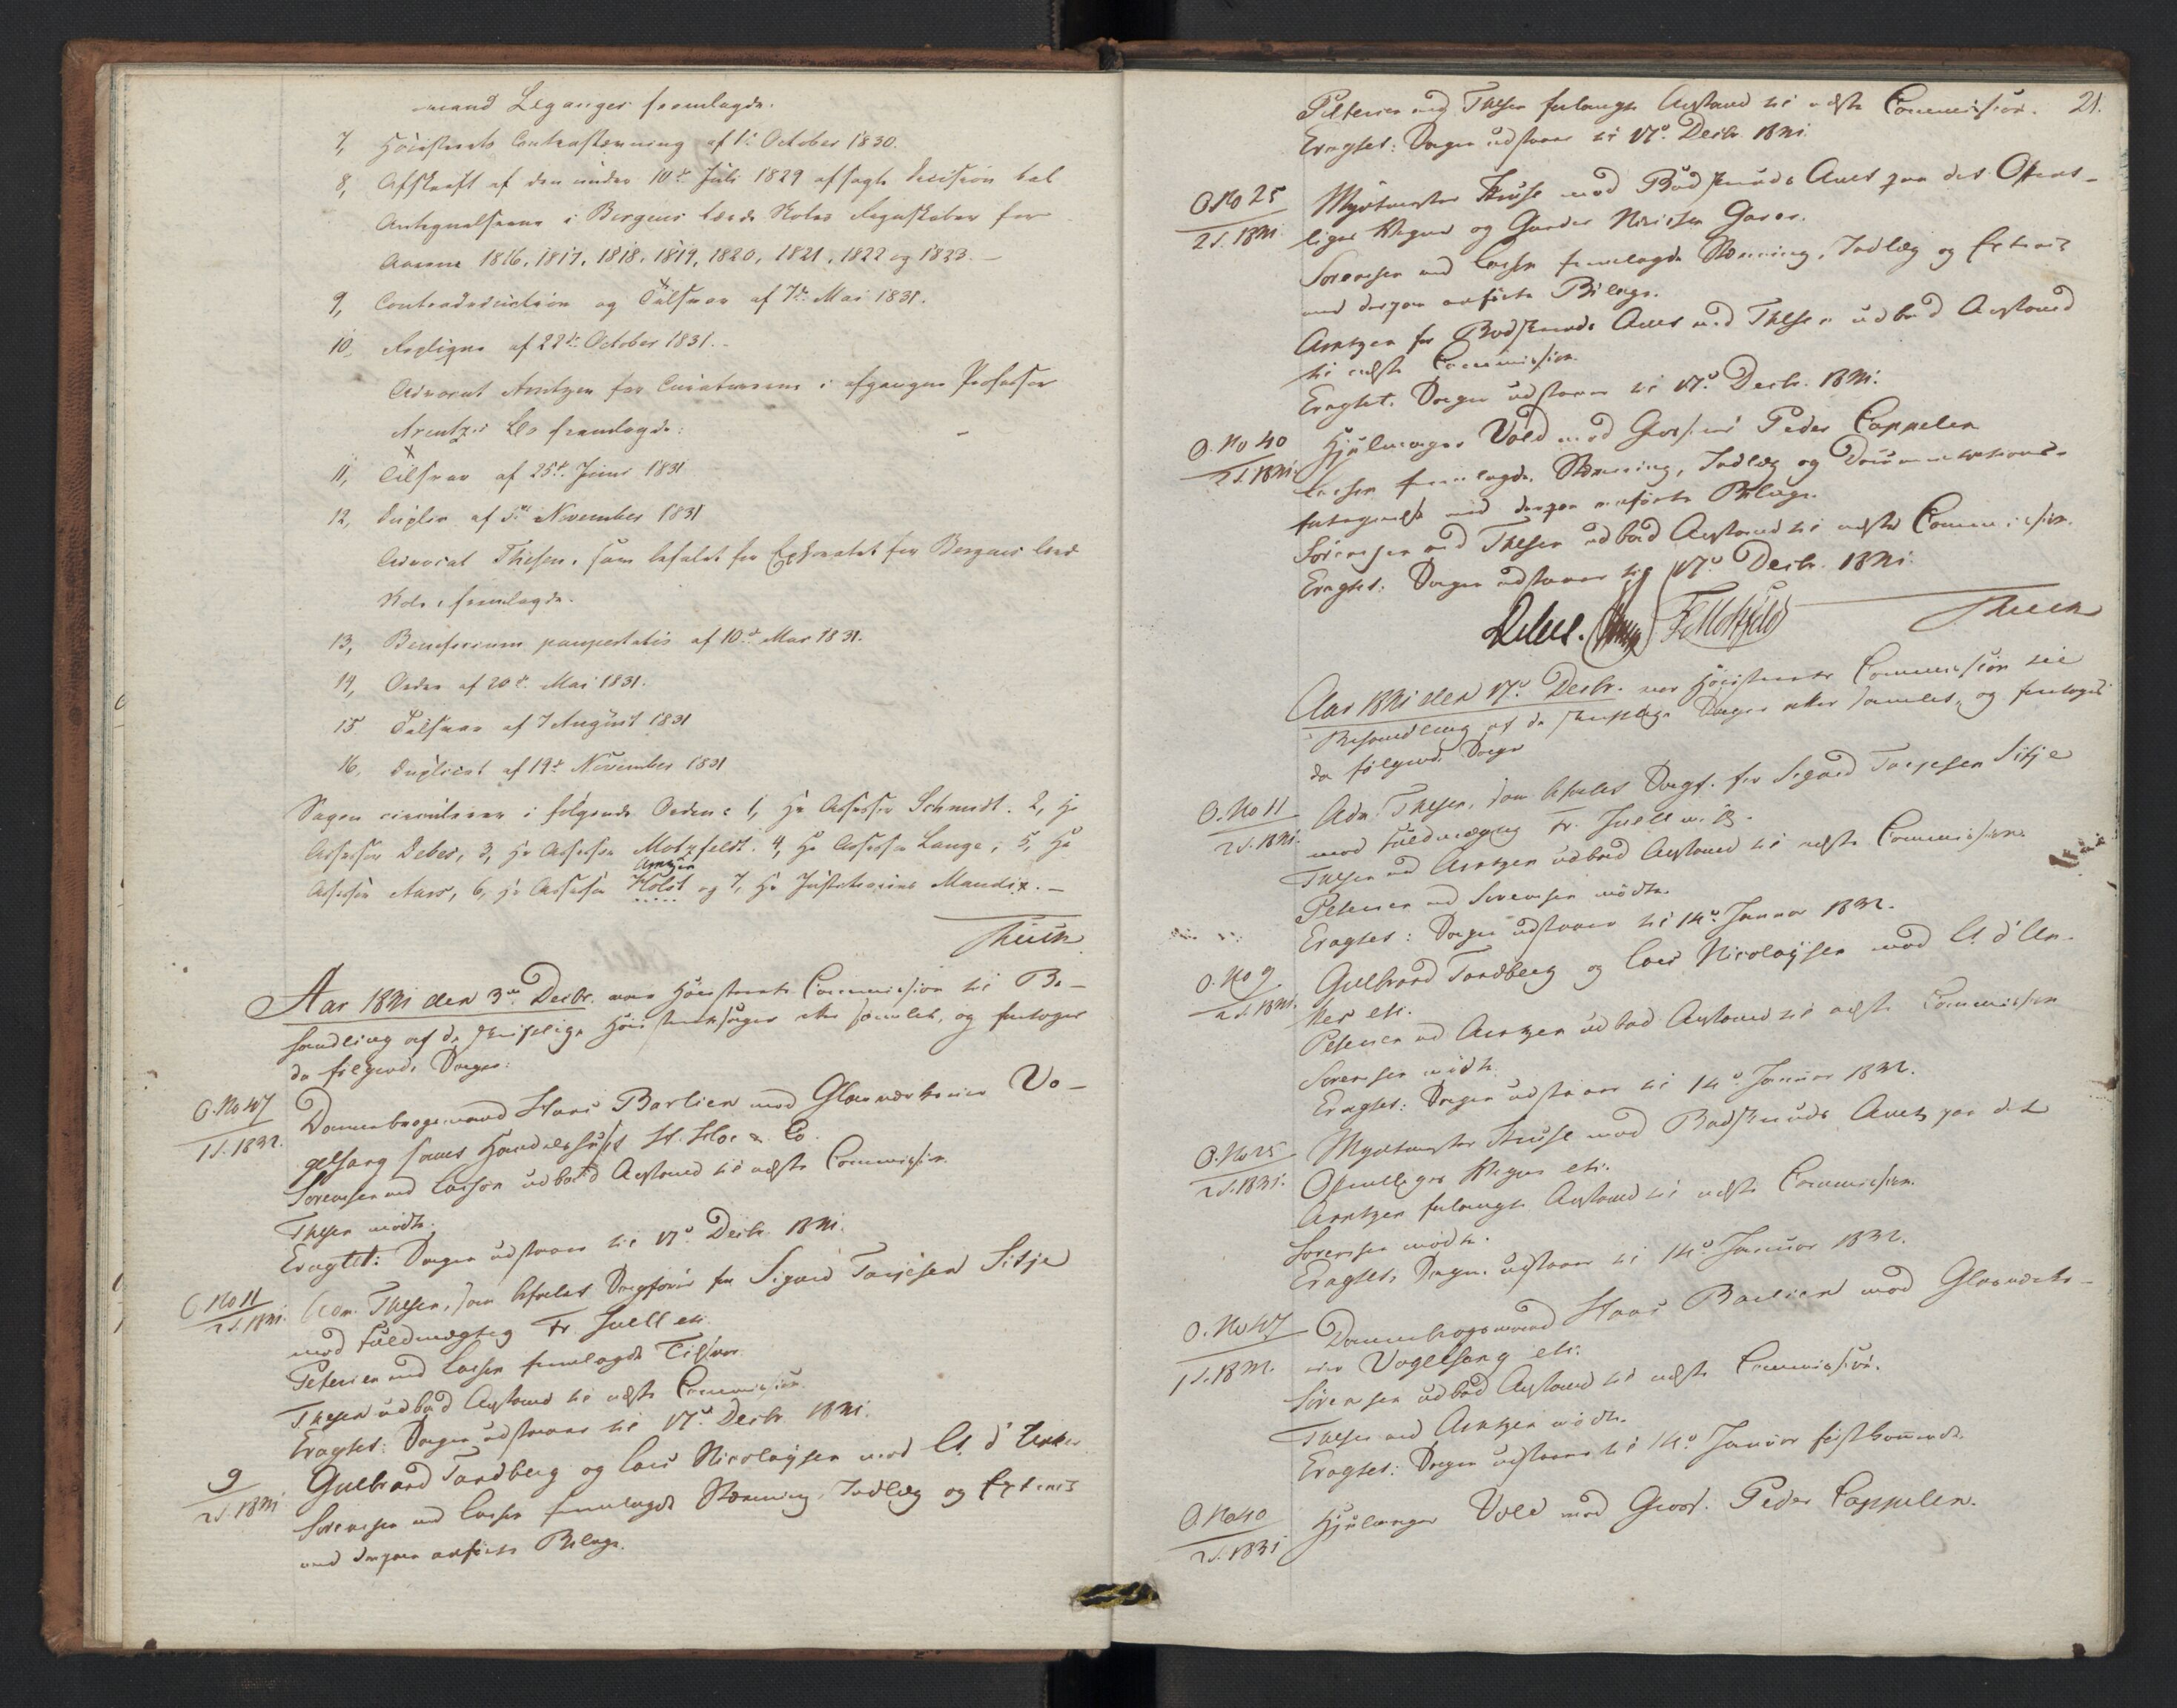 mand Leganger fremlagde.
7, Høiesterets Contrastævning af 1ste October 1830.
8, Afskrift af den under 10de Juli 1829 afsagte Decision tal
Antegnelserne i Bergens lærde Skoles Regnskaber for
Aarene 1816, 1817, 1818, 1819, 1820, 1821, 1822 og 1823. —
9, Contradeduction og Tilsvar af 7de Mai 1831.
10, Repliqve af 22de October 1831. -
Advocat Arntzen for Curatorerne i afgangne Professor
Arentz's Bo fremlagde:
11, Tilsvar af 25de Juni 1831
12, Duplik af 5te November 1831
Advocat Thesen, som befalet for Bergens lærde
Skole, fremlagde.
13, Beneficium paupertatis af 10de Mai 1831.
14, Ordre af 20de Mai 1831.
15 Tilsvar af 7 August 1831
16, Duplicat af 19de November 1831
Sagen circulerer i følgende Orden: 1, Hr Assessor Schmidt. 2, Hr
Assessor Debes, 3, Hr Assessor Motzfeldt. 4, Hr Assessor Lange, 5, Hr
Arntzen
Assessor Aars, 6, Hr Assessor Holst og 7, Hr Justitiarius Mandix. —
Aar 1831 den 3die Decbr. var Høiesterets Commission til Be-
handling af de skriftlige Høiesteretssager atter samlet, og foretoges
da følgende Sager:
O. No 47
1 S. 1832.
Dannebrogsmand Hans Barlien mod Glasværkseier Vo-
gelsang samt Handelshuset H. Hoe & Co.
Sørensen med Lasson udbad Anstand til næste Commission.
Thesen mødte.
Eragtet: Sagen udstaaer til 17de Decbr. 1831.
O. No 11
2 S. 1831.
Adv. Thesen, som befalet Sagfører for Sigurd Tarjesen Sitje
mod Fuldmægtig Fr. Juell etc.
Petersen med Lasson fremlagde Tilsvar.
Thesen udbad Anstand til næste Commission.
Eragtet: Sagen udstaaer til 17de Decbr. 1831.
9
2 S. 1831
Gulbrand Tandberg og Lars Nicolaysen mod A. d'Unker
Sørensen med Lasson fremlagde Stævning, Indlæg og Extract
med derpaa anførte Bilage.
21.
Petersen med Thesen forlangte Anstand til næste Commission.
Eragtet: Sagen udstaaer til 17de Decbr. 1831.
O. No 25
2 S. 1831.
Myntmester Kruse mod Budskruds Amt paa det Offent-
liges Vegne og Gaarder
Sørensen med Lasson fremlagde Stævning, Indlæg og Extract
med derpaa anførte Bilage.
Arntzen for Budskruds Amt med Thesen udbad Anstand
til næste Commission.
Eragtet. Sagen udstaaer til 17de Decbr. 1831.
O. No 40
2 S. 1831.
Hjulmager Vold mod Grosserer Peder Cappelen
Lasson fremlagde Stævning, Indlæg og Documentations-
foretagende med derpaa anførte Bilage.
Sørensen med Thesen udbad Anstand til næste Commission.
Eragtet: Sagen udstaaer til 17de Decbr. 1831.
Debes. F Motzfeldt
Aar 1831 den 17de Decbr. var Høiesterets Commission til
Behandling af de skriftlige Sager atter samlet, og foretoges
da følgende Sager
O. No 11
2 S. 1831.
Adv. Thesen, som befalet Sagf. for Sigurd Tarjesen Sitje
mod Fuldmægtig Fr. Juell m. fl.
Thesen med Arntzen udbad Anstand til næste Commission.
Petersen med Sørensen mødte.
Eragtet: Sagen udstaaer til 14de Januar 1832.
O. No 9
2 S. 1831.
Gulbrand Tandberg og Lars Nicolaysen mod A. d'Un-
ker etc.
Petersen med Arntzen udbad Anstand til næste Commission
Sørensen mødte.
Eragtet: Sagen udstaaer til 14de Januar 1832.
O. No 25
2 S. 1831.
Myntmester Kruse mod Budskruds Amt paa det
Offentliges Vegne etc.
Arntzen forlangte Anstand til næste Commission.
Sørensen mødte.
Eragtet: Sagen udstaaer til 14de Januar 1832.
O. No 47
1 S. 1832.
Dannebrogsmand Hans Barlien mod Glasværks-
eier Vogelsang etc.
Sørensen udbad Anstand til næste Commission.
Thesen med Arntzen mødte.
Eragtet: Sagen udstaaer til 14de Januar førstkommende.
O. No 40
2 S. 1831
Hjulmager Vold mod Gross. Peder Cappelen.